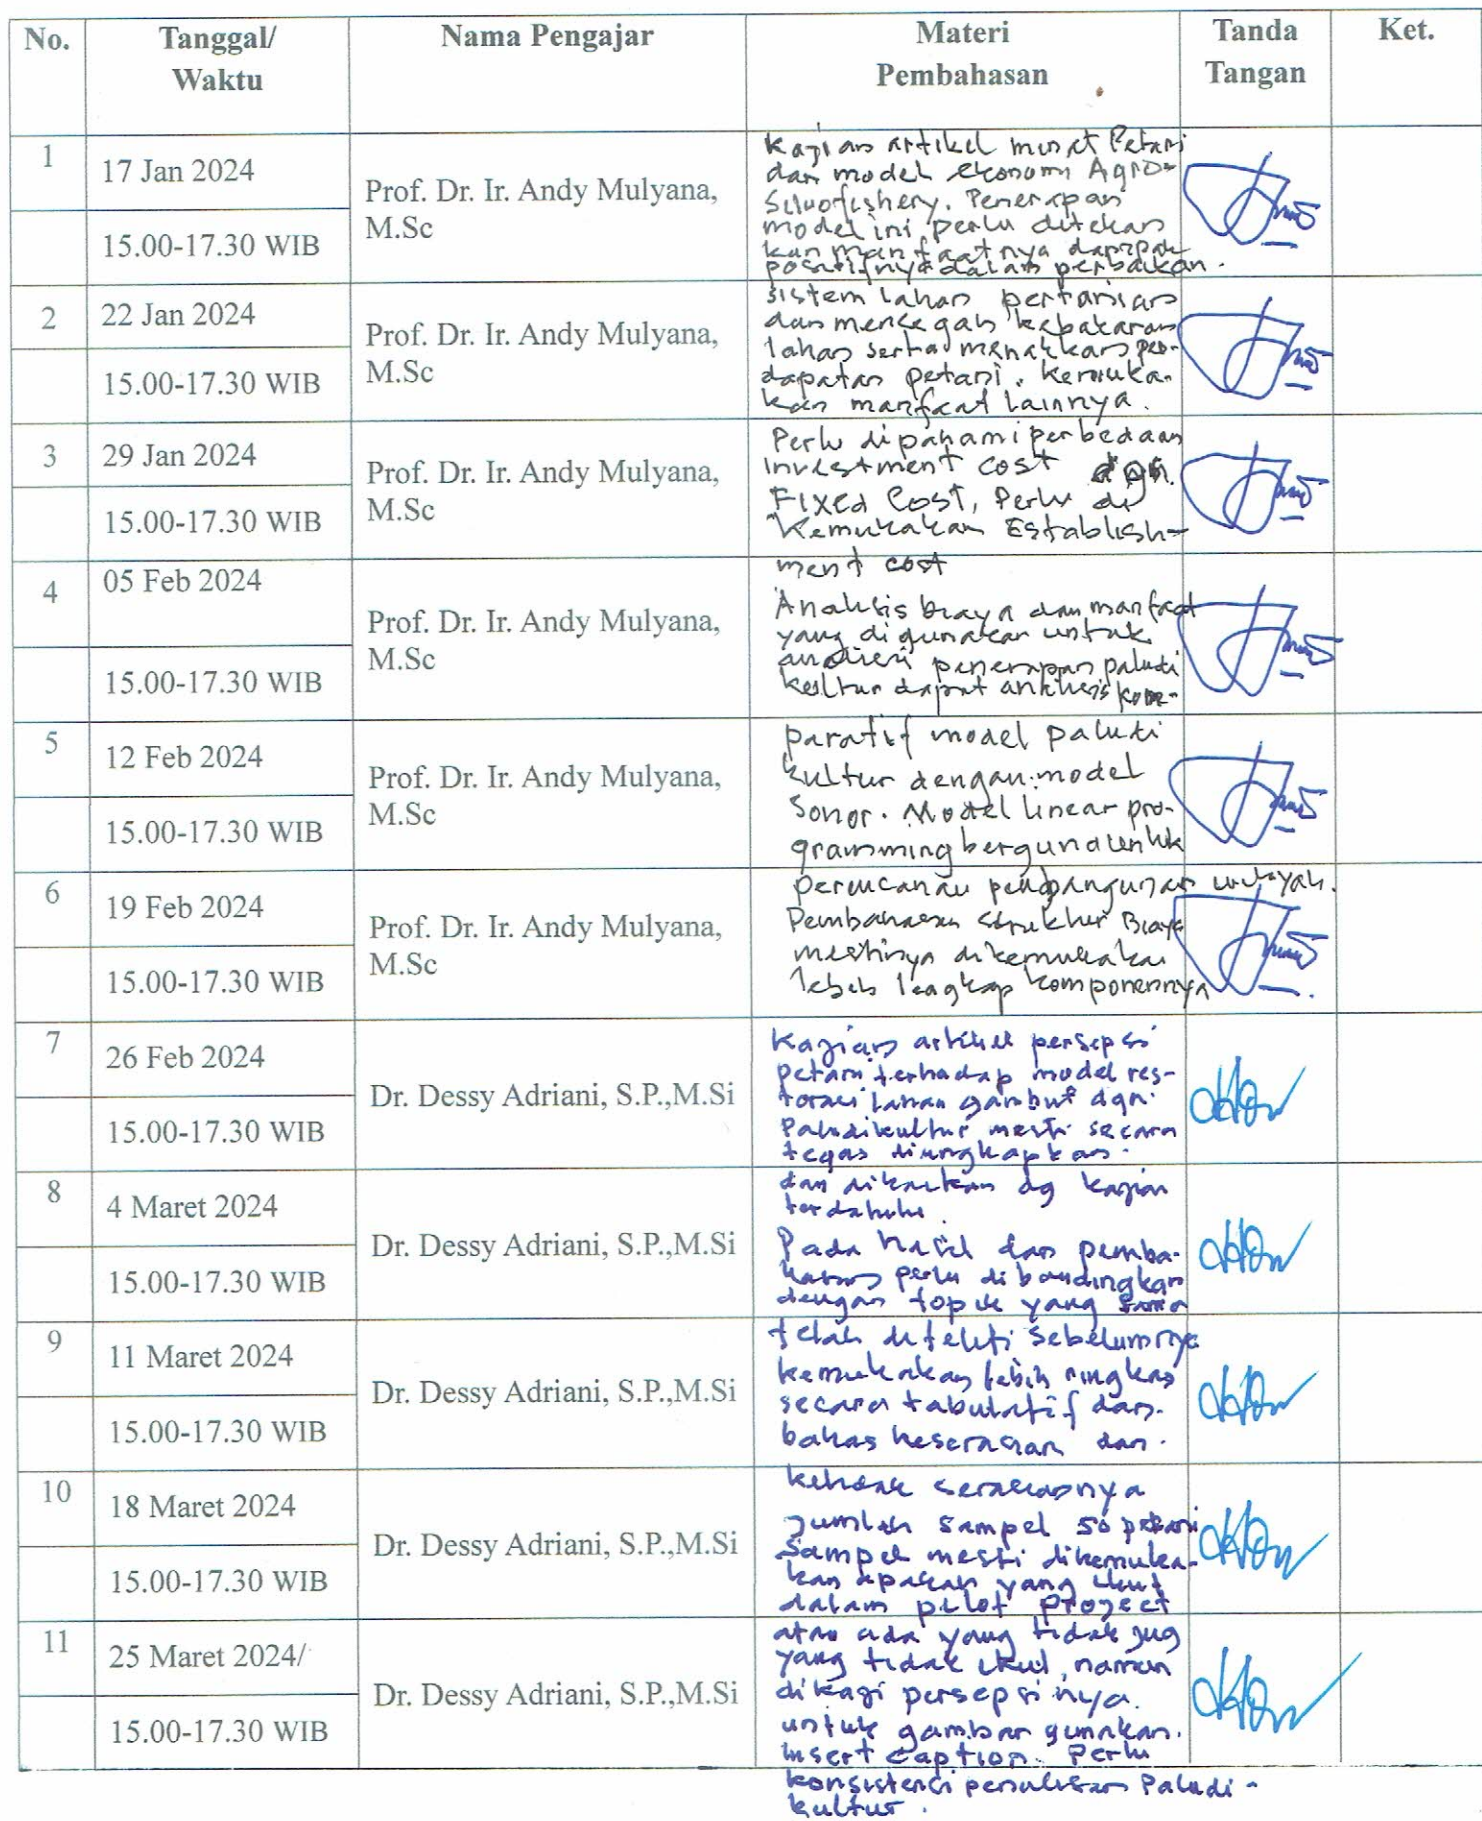 No. Tanggal/ Waktu Nama Pengajar Materi Pembahasan Tanda Tangan Ket.
1
17 Jan 2024
15.00-17.30 WIB
Prof. Dr. Ir. Andy Mulyana,
M.Sc
Kajian artikel minat Petani
dan model ekonomi Agro-
Silvofishery. Penerapan
model ini perlu ditekan
kan manfaatnya dampak
positifnya dalam perbaikan.
2
22 Jan 2024
15.00-17.30 WIB
Prof. Dr. Ir. Andy Mulyana,
M.Sc
sistem lahan pertanian
dan mencegah kebakaran
lahan serta menaikkan pen-
dapatan petani. Kemuka-
kan manfaat lainnya.
3
29 Jan 2024
15.00-17.30 WIB
Prof. Dr. Ir. Andy Mulyana,
M.Sc
Perlu dipahami perbedaan
investment cost dgn.
Fixed Cost, Perlu di
Kemukakan Establish-
ment cost
4
05 Feb 2024
15.00-17.30 WIB
Prof. Dr. Ir. Andy Mulyana,
M.Sc
Analisis biaya dan manfaat
yang digunakan untuk
penerapan paludi
kultur dapat analisis kom-
5
12 Feb 2024
15.00-17.30 WIB
Prof. Dr. Ir. Andy Mulyana,
M.Sc
paratif model paludi
kultur dengan model
Sonor. Model linear pro-
gramming berguna untuk
6
19 Feb 2024
15.00-17.30 WIB
Prof. Dr. Ir. Andy Mulyana,
M.Sc
perencanaan pembangunan wilayah.
Pembahasan struktur Biaya
mestinya dikemukakan
lebih lengkap komponennya
7
26 Feb 2024
15.00-17.30 WIB
Dr. Dessy Adriani, S.P.,M.Si
Kajian artikel persepsi
petani terhadap model res-
torasi lahan gambut dgn.
Paludikultur mesti secara
tegas diungkapkan.
8
4 Maret 2024
15.00-17.30 WIB
Dr. Dessy Adriani, S.P.,M.Si
dan dikaitkan dg kajian
terdahulu.
Pada hasil dan pemba-
hasan perlu dibandingkan
dengan topik yang sama
9
11 Maret 2024
15.00-17.30 WIB
Dr. Dessy Adriani, S.P.,M.Si
telah diteliti sebelumnya
kemukakan lebih ringkas
secara tabulatif dan
bahas keserasian dan
10
18 Maret 2024
15.00-17.30 WIB
Dr. Dessy Adriani, S.P.,M.Si
jumlah sampel 50 petani
Sampel mesti dikemuka-
kan apakah yang ikut
dalam pilot project
11
25 Maret 2024/
15.00-17.30 WIB
Dr. Dessy Adriani, S.P.,M.Si
atau ada yang tidak jug
yang tidak ikut, namun
dikaji persepsinya.
untuk gambar gunakan
insert caption. Perlu
konsistensi penulisan Paludi-
kultur.